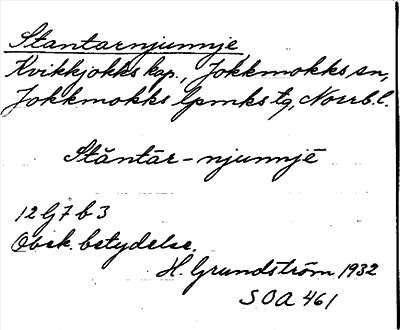 Stantarnjunnje
Kvikkjokks kap., Jokkmokks sn,
Jokkmokks lpmks tg, Norrb. l.
Stăntār-njunnjē
12 Gj 7 b 3
Obek. betydelse.
H. Grundström 1932
SOA 461